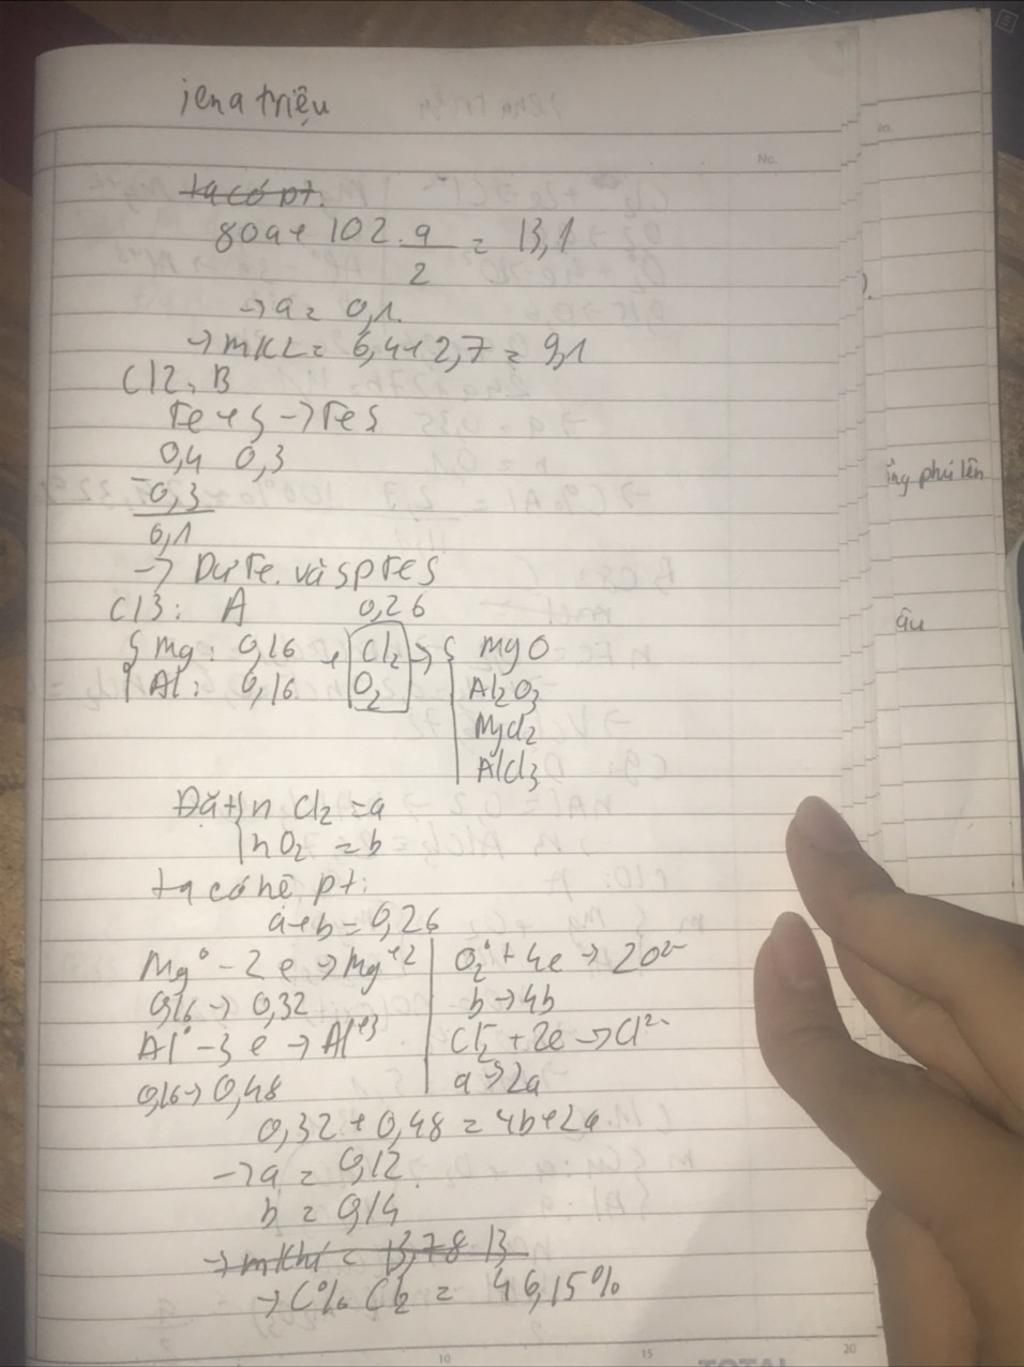 jena triệu
No.
ta có pt:
80a + 102 . a/2 = 13,1
→ a = 0,1.
→ mKL = 6,4 + 2,7 = 9,1
C12: B
Fe + S → FeS
0,4 0,3
-0,3
0,1
→ Dư Fe. và sp FeS
C13: A 0,26
{ Mg: 0,16 + Cl2 → { MgO
Al: 0,16. O2 Al2O3
MgCl2
AlCl3
Đặt { n Cl2 = a
nO2 = b
ta có hệ pt:
a + b = 0,26
Mg⁰ - 2e → Mg⁺² | O2⁰ + 4e → 2O²⁻
0,16 → 0,32 b → 4b
Al⁰ - 3e → Al⁺³ Cl2 + 2e → Cl²⁻
0,16 → 0,48 a → 2a
0,32 + 0,48 = 4b + 2a
→ a = 0,12
b = 0,14
→ mKhí = 13,78 13
→ C% Cl2 = 46,15%
ứng phú lên
âu
10 15 20
TOTAL